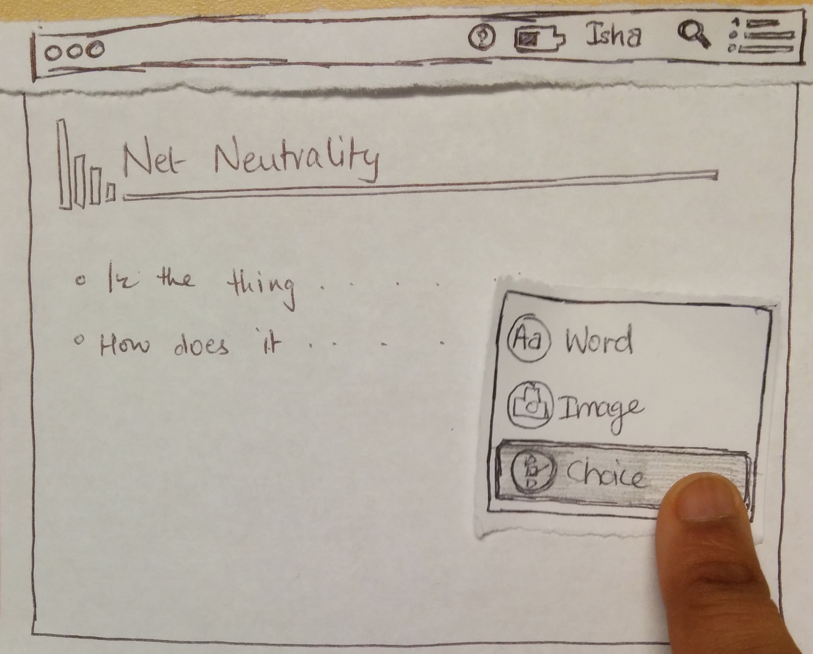 ? Isha
Net Neutrality
Is the thing . . . .
How does it . . . .
Aa Word
Image
Choice